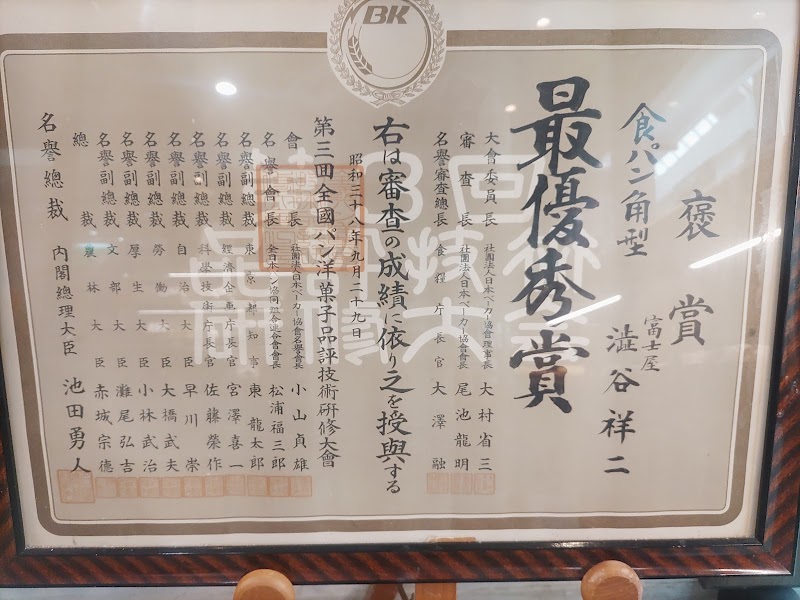 BK
褒賞
食パン角型
富士屋
澁谷祥二
最優秀賞
大會委員長 社團法人日本ベーカー協會理事長 大村省三
審査長 社團法人日本ベーカー協會會長 尾池龍明
名譽審査總長 食糧庁長官 大澤融
右は審查の成績に依り之を授與する
昭和三十八年九月二十九日
第三回全國パン洋菓子品評技術研修大會
會長 社團法人日本ベーカー協會名譽會長 小山貞雄
名譽會長 全日本パン協同組合連合會會長 松浦福三郎
名譽副總裁 東京都知事 東龍太郎
名譽副總裁 經濟企画庁長官 宮澤喜一
名譽副總裁 科學技術庁長官 佐藤榮作
名譽副總裁 自治大臣 早川崇
名譽副總裁 勞働大臣 大橋武夫
名譽副總裁 厚生大臣 小林武治
名譽副總裁 文部大臣 灘尾弘吉
總裁 農林大臣 赤城宗德
名譽總裁 內閣總理大臣 池田勇人